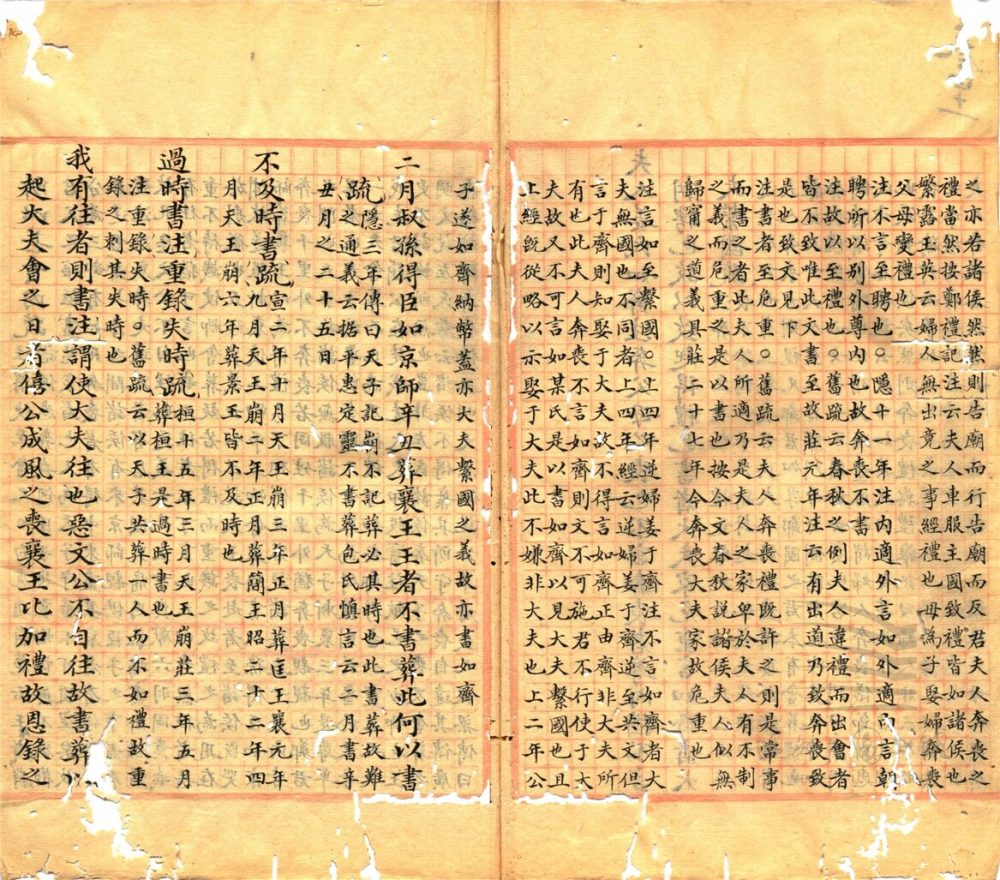 之亦若諸侯然然則告廟而行告廟而反君夫人奔喪之
禮當然按鄭禮記注云夫人車服主國致禮皆如諸侯也
繁露玉英云婦人無出竟之事經禮也母為子娶婦奔喪
父母變禮也
注不言至聘也。隱十一年注內適外言如外適內言朝
聘所以別外尊內也故奔喪不書
注故以至禮也。舊疏云春秋之例夫人違禮而出會者
皆不致唯此文書至故莊元年注云有出道乃致奔喪致
是也致文見下
注書者至危重。舊疏云夫人奔喪禮既許之則是常事
而書之者此夫人所適乃是夫人之家卑於夫人有不制
之義而危重之是以書也按今文春秋說諸侯夫人似無
歸甯之道義具莊二十七年今奔喪大夫家故危重也
注言如至繫國。上四年逆婦姜于齊注不言如齊者大
夫無國也不同者上四年經云逆婦姜于齊逆至共文但
言于齊則知娶于大夫故不得言如齊正由齊非大夫所
有也此夫人奔喪不言如齊則文不可施君不行使于大
夫故又不可言如某氏是以書如齊以見大夫繫國也且
上經既從略以示娶于大夫此不嫌非大夫也上二年公
子遂如齊納幣蓋亦大夫繫國之義故亦書如齊
二月叔孫得臣如京師辛丑葬襄王王者不書葬此何以書
疏隱三年傳曰天子記崩不記葬必其時也此書葬故難
之通義云据平惠定靈不書葬包氏慎言云二月書辛
丑月之二十五日
不及時書疏宣二年十月天王崩三年正月葬匡王襄元年
九月天王崩二年正月葬簡王昭二十二年四
月天王崩六年葬景王皆不及時也
過時書注重錄失時疏桓十五年三月天王崩莊三年五月
葬桓王是過時書也
注重錄失時。舊疏云以天子共葬一人而不如禮故重
錄之刺其失時也
我有往者則書注謂使大夫往也惡文公不自往故書葬以
起大夫會之日者僖公成風之喪襄王比加禮故恩錄之